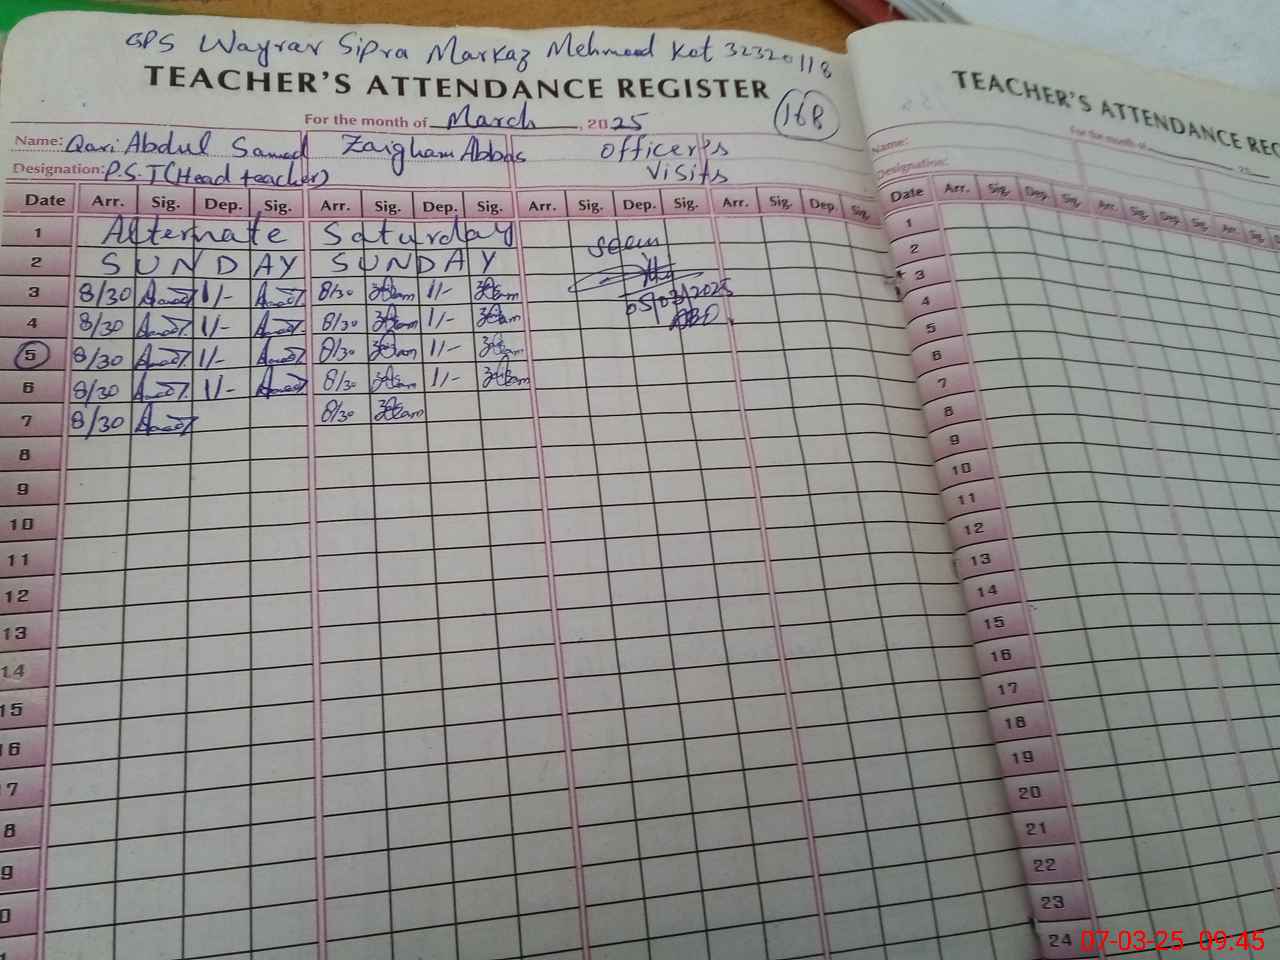 GPS Wayrar Sipra Markaz Mehmood Kot 32320118
TEACHER'S ATTENDANCE REGISTER
168
For the month of March, 2025
Name: Qari Abdul Samad Zaigham Abbas officer's
Designation: P.S.T (Head teacher) visits
Date Arr. Sig. Dep. Sig. Arr. Sig. Dep. Sig. Arr. Sig. Dep. Sig. Arr. Sig. Dep. Sig.
1 Alternate Saturday seen
2 SUNDAY SUNDAY
3 8/30 1/- 8/30 1/- 05/03/2025
4 8/30 1/- 8/30 1/-
5 8/30 1/- 8/30 1/-
6 8/30 1/- 8/30 1/-
7 8/30 8/30
8
9
10
11
12
13
14
15
6
7
8
9
0
TEACHER'S ATTENDANCE REG
For the month of 20
Name:
Designation:
Date Arr. Sig. Dep. Sig. Arr. Sig. Dep. Sig. Arr. Sig.
1
2
3
4
5
6
7
8
9
10
11
12
13
14
15
16
17
18
19
20
21
22
23
24
07-03-25 09:45